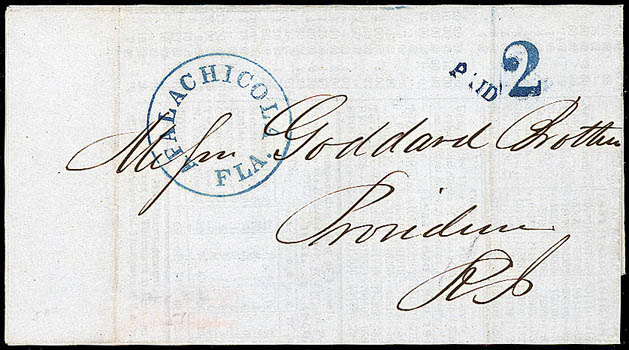 APALACHICOLA
FLA.
PAID 2
Messrs Goddard Brothers
Providence
R I